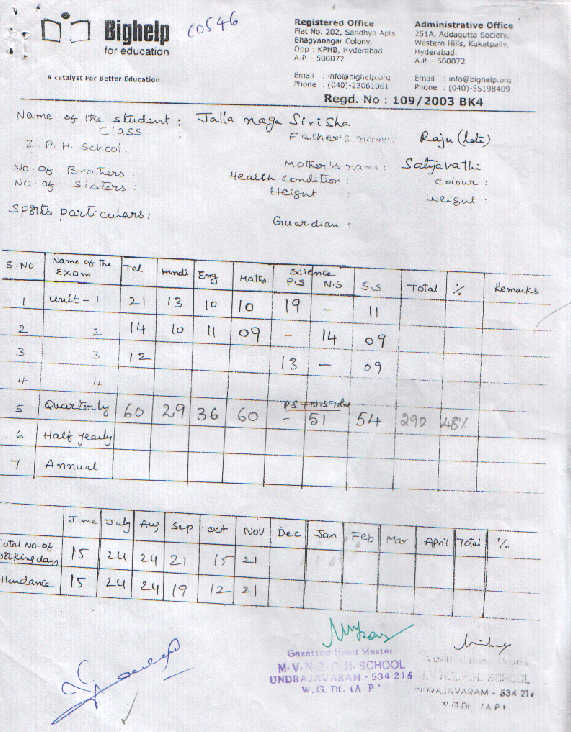 Bighelp
for education
A Catalyst For Better Education
C0546
Registered Office
Flat No. 202, Sandhya Apts
Bhagyanagar Colony,
Opp : KPHB, Hyderabad
A.P - 500072
Email : info@bighelp.org
Phone : (040)-23061061
Administrative Office
251A, Addagutta Society,
Western Hills, Kukatpally,
Hyderabad.
A.P - 500072
Email : info@bighelp.org
Phone : (040)-55198409
Regd. No : 109/2003 BK4
Name of the student : Jalla naga Sirisha
Class
Father's name: Raju (late)
Z. P. H. School
Mother's name: Satyavathi
No. of Brothers :
Health Condition : Colour :
No. of Sisters :
Height weight :
Sports Particulars :
Guardian :
S. NO Name of the Exam Tel Hindi Eng Maths Science P.S N.S S.S Total % Remarks
1 Unit - 1 21 13 10 10 19 - 11
2 2 14 10 11 09 - 14 09
3 3 12 13 - 09
4 4
5 Quarterly 60 29 36 60 - 51 54 290 48%
6 Half yearly
7 Annual
June July Aug Sep Oct Nov Dec Jan Feb Mar April Total %
Total No. of working days 15 24 24 21 15 21
Attendance 15 24 24 19 12 21
Gazetted Head Master
SCHOOL
UNDRAJAVARAM - 534 216
W.G. Dt. (A.P)
SCHOOL
UNDRAJAVARAM - 534 216
W.G. Dt. (A.P)